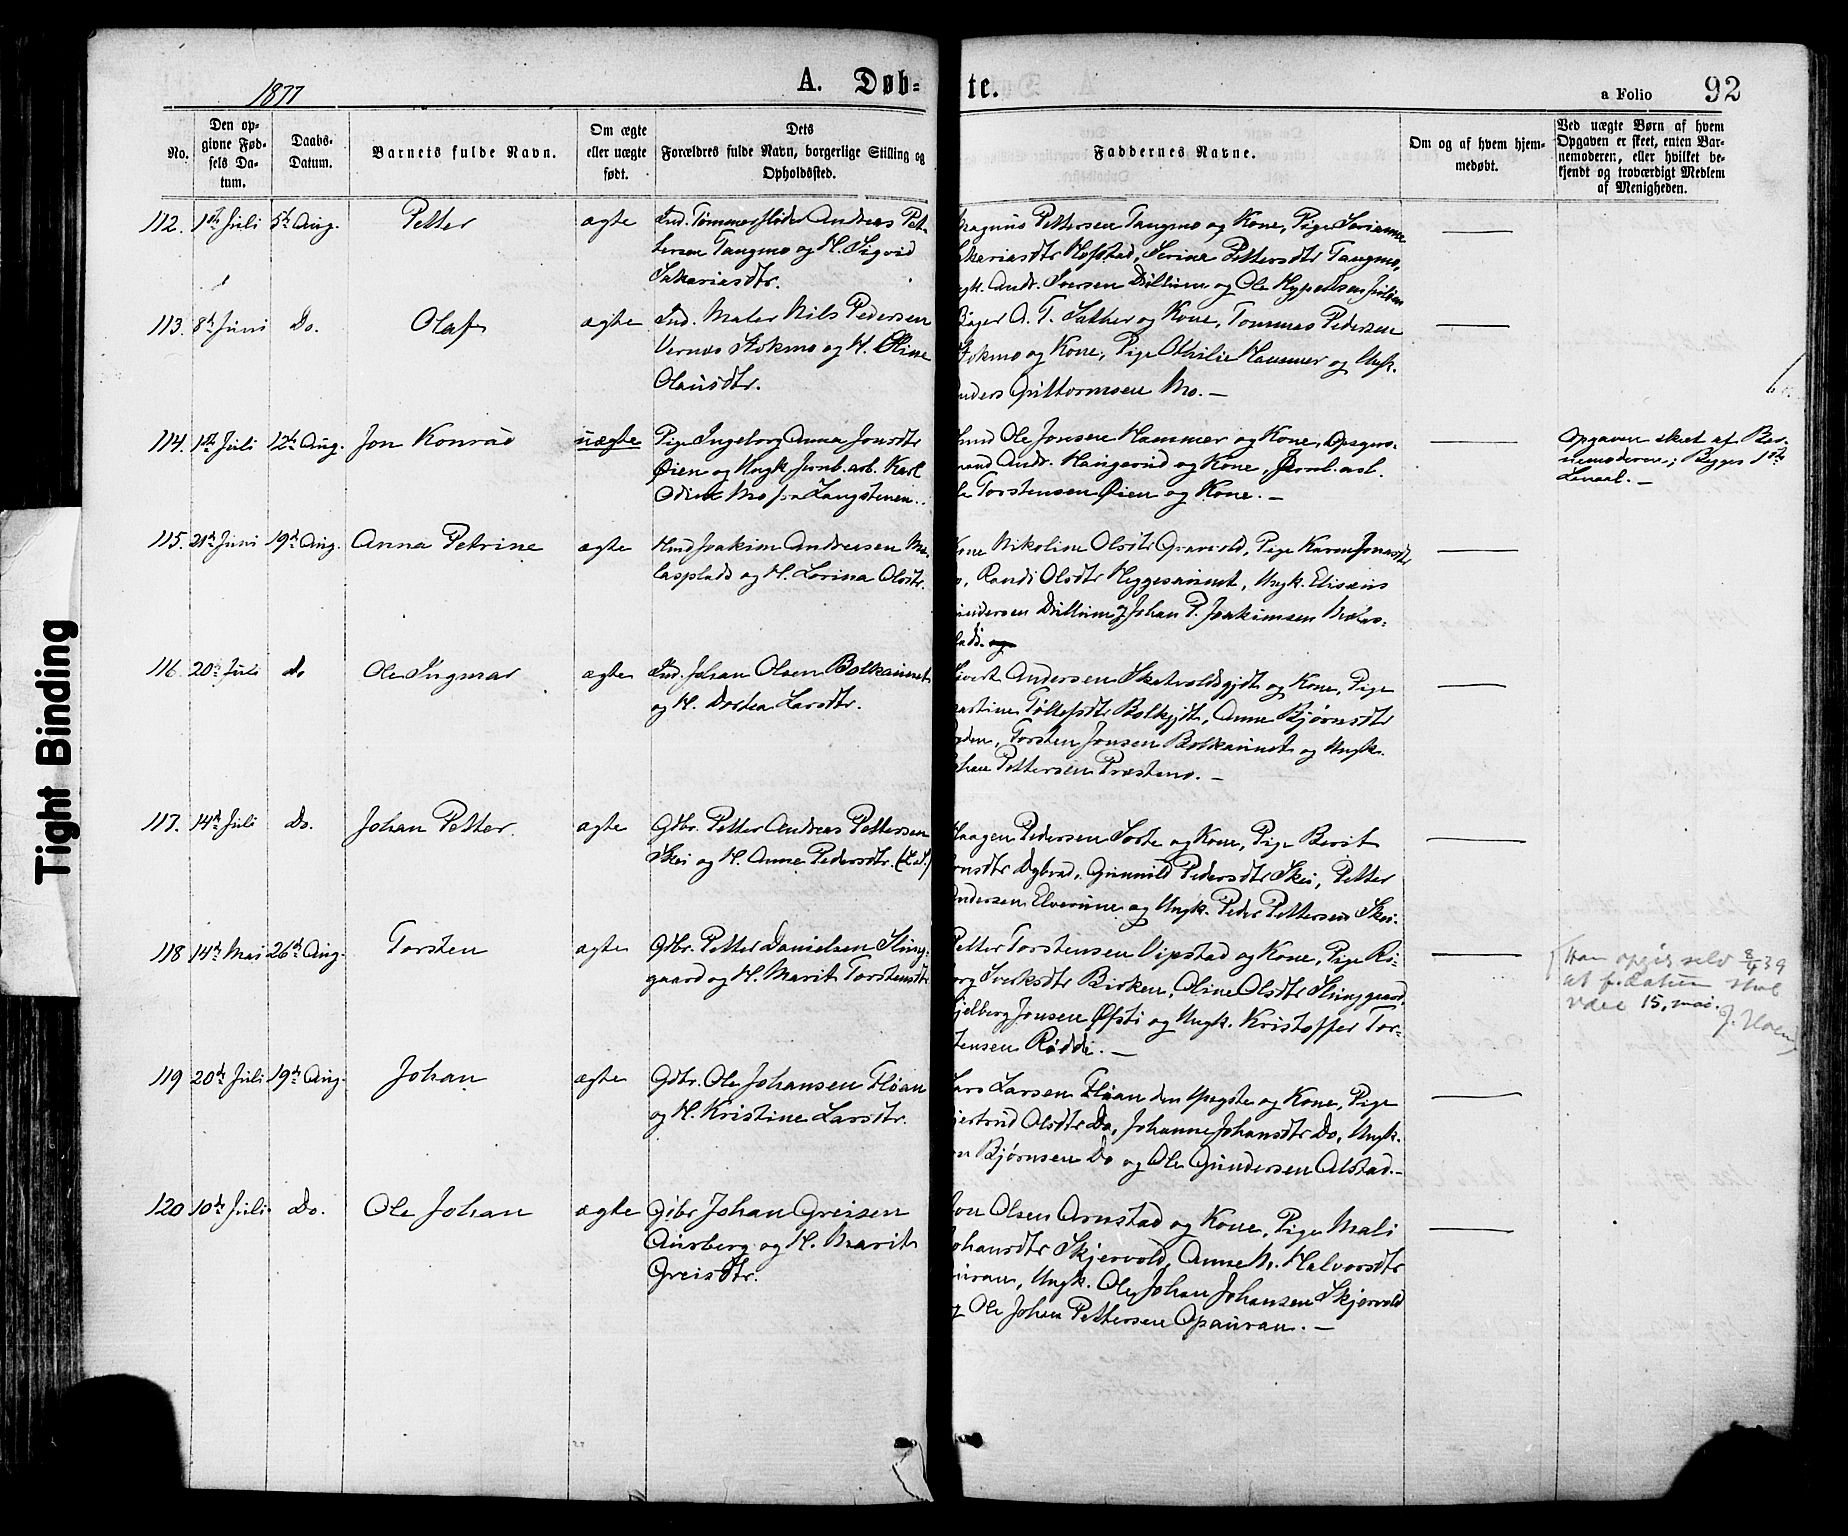 1877
A. Døb-
te.
a Folio 92
No.
Den op-
givne Fød-
sels Da-
tum.
Daabs-
Datum.
Barnets fulde Navn.
Om ægte
eller uægte
født.
Dets
Forældres fulde Navn, borgerlige Stilling og
Opholdssted.
Faddernes Navne.
Om og af hvem hjem-
medøbt.
Ved uægte Børn af hvem
Opgaven er skeet, enten Bar-
nemoderen, eller hvilket be-
kjendt og troværdigt Medlem
af Menigheden.
112. 1ste Juli 5te Aug. Petter ægte
Ind. Tømmerfløder Andreas Pet-
tersen Tangmo og H. Sigrid
Sakariasdtr.
Magnus Pettersen Tangmo og Kone, Pige
Sakariasdtr Hofstad, Serina Pettersdtr Tangmo,
Ungk. Andr. Iversen Dullum og Ole
113. 8de Juni Do. Olaf ægte
Ind. Maler Nils Pedersen
Vernes Stokmo og H. Oline
Olausdtr.
A. T. Sather og Kone, Tommas Pedersen
Stokmo og Kone, Pige Othilie Hammer og Ungk.
Mo. —
114. 1ste Juli 12te Aug. Jon Konrad uægte
Pige Ingeborg Anna Jonsdtr
Øien og Ungk. Jernb. arb. Karl
Odin Mo fra Langstenen.
Hmd Ole Jonsen Hammer og Kone, Opsyns-
mand Andr. Haugerud og Kone, Jernb. arb.
Ole Torstensen Øien og Kone. —
Opgaven skeet af Bar-
nemoderen; Begges 1ste
Leiermaal. —
115. 21de Juni 19de Aug. Anna Petrine ægte
Hmd Joakim Andreasen Mo-
lasplads og H. Lorina Olsdtr.
Kone Nikoline Olsdtr Gravold, Pige Karen Jonasdtr
Do, Randi Olsdtr Heggesaunet, Ungk. Elisæus
Gundersen Dullum og Johan P. Joakimsen Molas-
plads. og
116. 20de Juli do Ole Ingmar ægte
Ind. Johan Olsen Bolkaunet
og H. Dortea Larsdtr.
Sivert Andersen Skatvoldsgjdt og Kone, Pige
Martine Tollefsdtr Bolkgjdt, Anne Bjørnsdtr
Torsten Jonsen Bolkaunet og Ungk.
Johan Pettersen Præstmo. —
117. 14de Juli Do. Johan Petter. ægte
Gdbr. Petter Andreas Pettersen
Skei og H. Anne Pedersdtr.
Haagen Pedersen Sorte og Kone, Pige Berit
Arnsdtr Dybvad, Gunnild Pedersdtr Skei, Petter
Andersen Elverune og Ungk. Peder Pettersen Skei.
118 14de Mai 26de Aug. Torsten ægte
Gdbr. Petter Danielsen Sting-
gaard og H. Marit Torstensdtr
Petter Torstensen Vigstad og Kone, Pige Rø-
borg Sverksdtr Birken, Oline Olsdtr Stinggaard,
Fjelberg Jonsen Øfsti og Ungk. Kristoffer Tor-
stensen Røddi. —
Han opgir selv 8/4 39
at f. datum skal
være 15. mai.
119 20de Juli 19de Aug. Johan ægte
Gdbr. Ole Johansen Fløan
og H. Kristine Larsdtr.
Lars Larsen Fløan den yngste og Kone, Pige
Gjertrud Olsdtr Do, Johanne Johansdtr Do, Ungk.
Jon Bjørnsen Do og Ole Gundersen Alstad. —
120 10de Juli Do. Ole Johan ægte
Gdbr Johan Greisen
Aurberg og H. Marit
Greisdtr.
Jon Olsen Arnstad og Kone, Pige Mali
Johansdtr Skjervold, Anne M. Halvorsdtr
Ungk. Ole Johan Johansen Skjervold
og Ole Johan Pettersen Opauran. —
Tight Binding